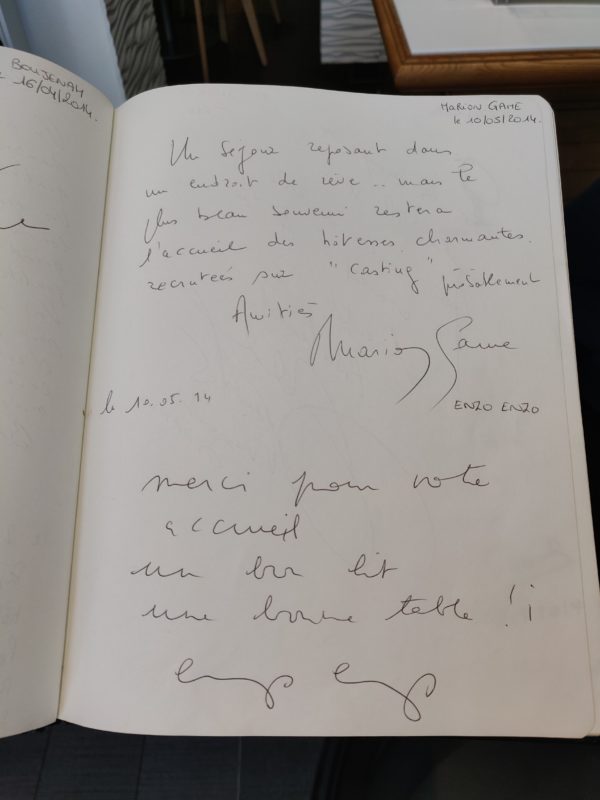 BOUJENAH
16/04/2014.
MARION GAME
le 10/05/2014.
Un séjour reposant dans
un endroit de rêve .. mais le
plus beau souvenir restera
l'accueil des hôtesses charmantes.
recrutées sur "casting" probablement
Amitiés
Marion Game
le 10.05.14
ENZO ENZO
merci pour votre
accueil
un bon lit
une bonne table !¡
enzo enzo